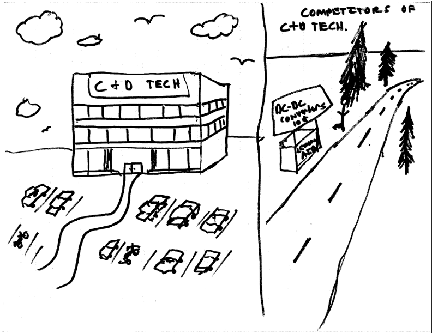 C+D TECH
COMPETITORS OF
C+D TECH.
DC-DC
CONVERTERS